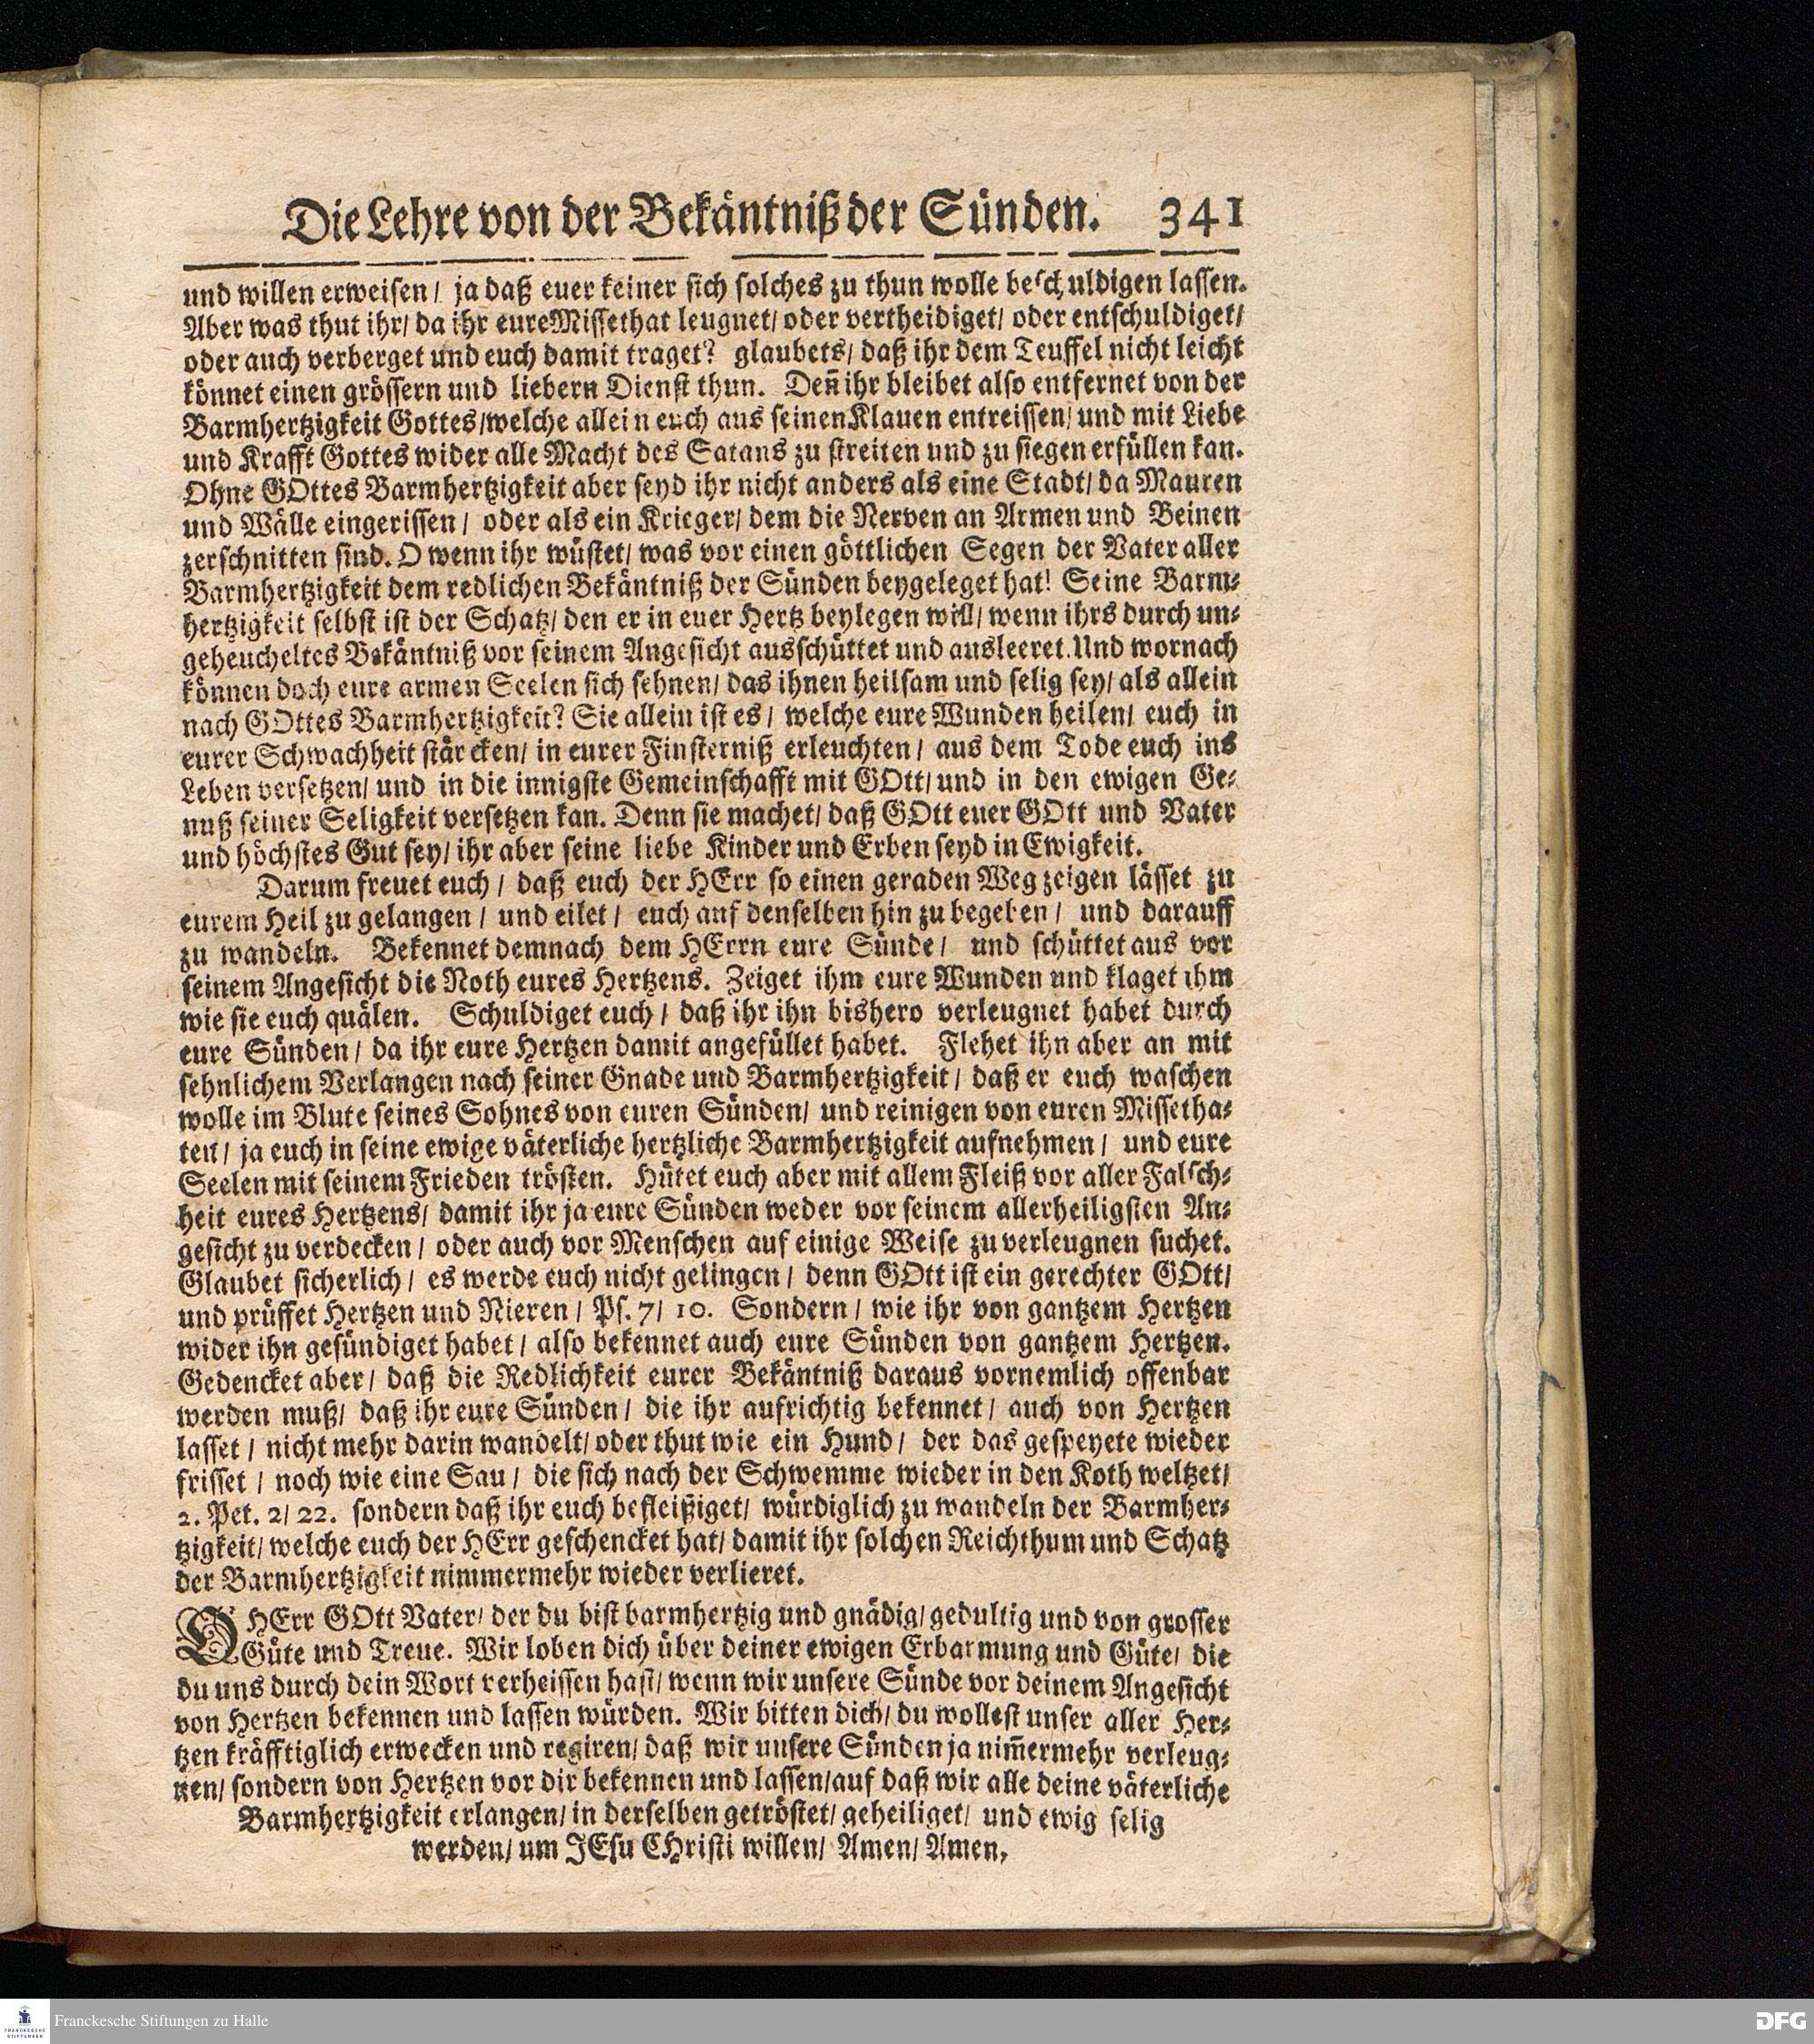 Die Lehre von der Bekäntniß der Sünden. 341
und willen erweisen / ja daß euer keiner sich solches zu thun wolle beschuldigen lassen.
Aber was thut ihr / da ihr eure Missethat leugnet / oder vertheidiget / oder entschuldiget /
oder auch verberget und euch damit traget? glaubets / daß ihr dem Teuffel nicht leicht
könnet einen grössern und liebern Dienst thun. Deñ ihr bleibet also entfernet von der
Barmhertzigkeit Gottes / welche allein euch aus seinen Klauen entreissen / und mit Liebe
und Krafft Gottes wider alle Macht des Satans zu streiten und zu siegen erfüllen kan.
Ohne GOttes Barmhertzigkeit aber seyd ihr nicht anders als eine Stadt / da Mauren
und Wälle eingerissen / oder als ein Krieger / dem die Nerven an Armen und Beinen
zerschnitten sind. O wenn ihr wüstet / was vor einen göttlichen Segen der Vater aller
Barmhertzigkeit dem redlichen Bekäntniß der Sünden beygeleget hat! Seine Barm-
hertzigkeit selbst ist der Schatz / den er in euer Hertz beylegen will / wenn ihrs durch un-
geheucheltes Bekäntniß vor seinem Angesicht ausschüttet und ausleeret. Und wornach
können doch eure armen Seelen sich sehnen / das ihnen heilsam und selig sey / als allein
nach GOttes Barmhertzigkeit? Sie allein ist es / welche eure Wunden heilen / euch in
eurer Schwachheit stärcken / in eurer Finsterniß erleuchten / aus dem Tode euch ins
Leben versetzen / und in die innigste Gemeinschafft mit GOtt / und in den ewigen Ge-
nuß seiner Seligkeit versetzen kan. Denn sie machet / daß GOtt euer GOtt und Vater
und höchstes Gut sey / ihr aber seine liebe Kinder und Erben seyd in Ewigkeit.
Darum freuet euch / daß euch der HErr so einen geraden Weg zeigen lässet zu
eurem Heil zu gelangen / und eilet / euch auf denselben hin zu begeben / und darauff
zu wandeln. Bekennet demnach dem HErrn eure Sünde / und schüttet aus vor
seinem Angesicht die Noth eures Hertzens. Zeiget ihm eure Wunden und klaget ihm
wie sie euch quälen. Schuldiget euch / daß ihr ihn bishero verleugnet habet durch
eure Sünden / da ihr eure Hertzen damit angefüllet habet. Flehet ihn aber an mit
sehnlichem Verlangen nach seiner Gnade und Barmhertzigkeit / daß er euch waschen
wolle im Blute seines Sohnes von euren Sünden / und reinigen von euren Missetha-
ten / ja euch in seine ewige väterliche hertzliche Barmhertzigkeit aufnehmen / und eure
Seelen mit seinem Frieden trösten. Hütet euch aber mit allem Fleiß vor aller Falsch-
heit eures Hertzens / damit ihr ja eure Sünden weder vor seinem allerheiligsten An-
gesicht zu verdecken / oder auch vor Menschen auf einige Weise zu verleugnen suchet.
Glaubet sicherlich / es werde euch nicht gelingen / denn GOtt ist ein gerechter GOtt /
und prüffet Hertzen und Nieren / Ps. 7 / 10. Sondern / wie ihr von gantzem Hertzen
wider ihn gesündiget habet / also bekennet auch eure Sünden von gantzem Hertzen.
Gedencket aber / daß die Redlichkeit eurer Bekäntniß daraus vornemlich offenbar
werden muß / daß ihr eure Sünden / die ihr aufrichtig bekennet / auch von Hertzen
lasset / nicht mehr darin wandelt / oder thut wie ein Hund / der das gespeyete wieder
frisset / noch wie eine Sau / die sich nach der Schwemme wieder in den Koth weltzet /
2. Pet. 2 / 22. sondern daß ihr euch befleißiget / würdiglich zu wandeln der Barmher-
tzigkeit / welche euch der HErr geschencket hat / damit ihr solchen Reichthum und Schatz
der Barmhertzigkeit nimmermehr wieder verlieret.
O HErr GOtt Vater / der du bist barmhertzig und gnädig / gedultig und von grosser
Güte und Treue. Wir loben dich über deiner ewigen Erbarmung und Güte / die
du uns durch dein Wort verheissen hast / wenn wir unsere Sünde vor deinem Angesicht
von Hertzen bekennen und lassen würden. Wir bitten dich / du wollest unser aller Her-
tzen kräfftiglich erwecken und regiren / daß wir unsere Sünden ja nim̃ermehr verleug-
nen / sondern von Hertzen vor dir bekennen und lassen / auf daß wir alle deine väterliche
Barmhertzigkeit erlangen / in derselben getröstet / geheiliget / und ewig selig
werden / um JEsu CHristi willen / Amen / Amen,
Franckesche Stiftungen zu Halle
FRANCKESCHE STIFTUNGEN
DFG